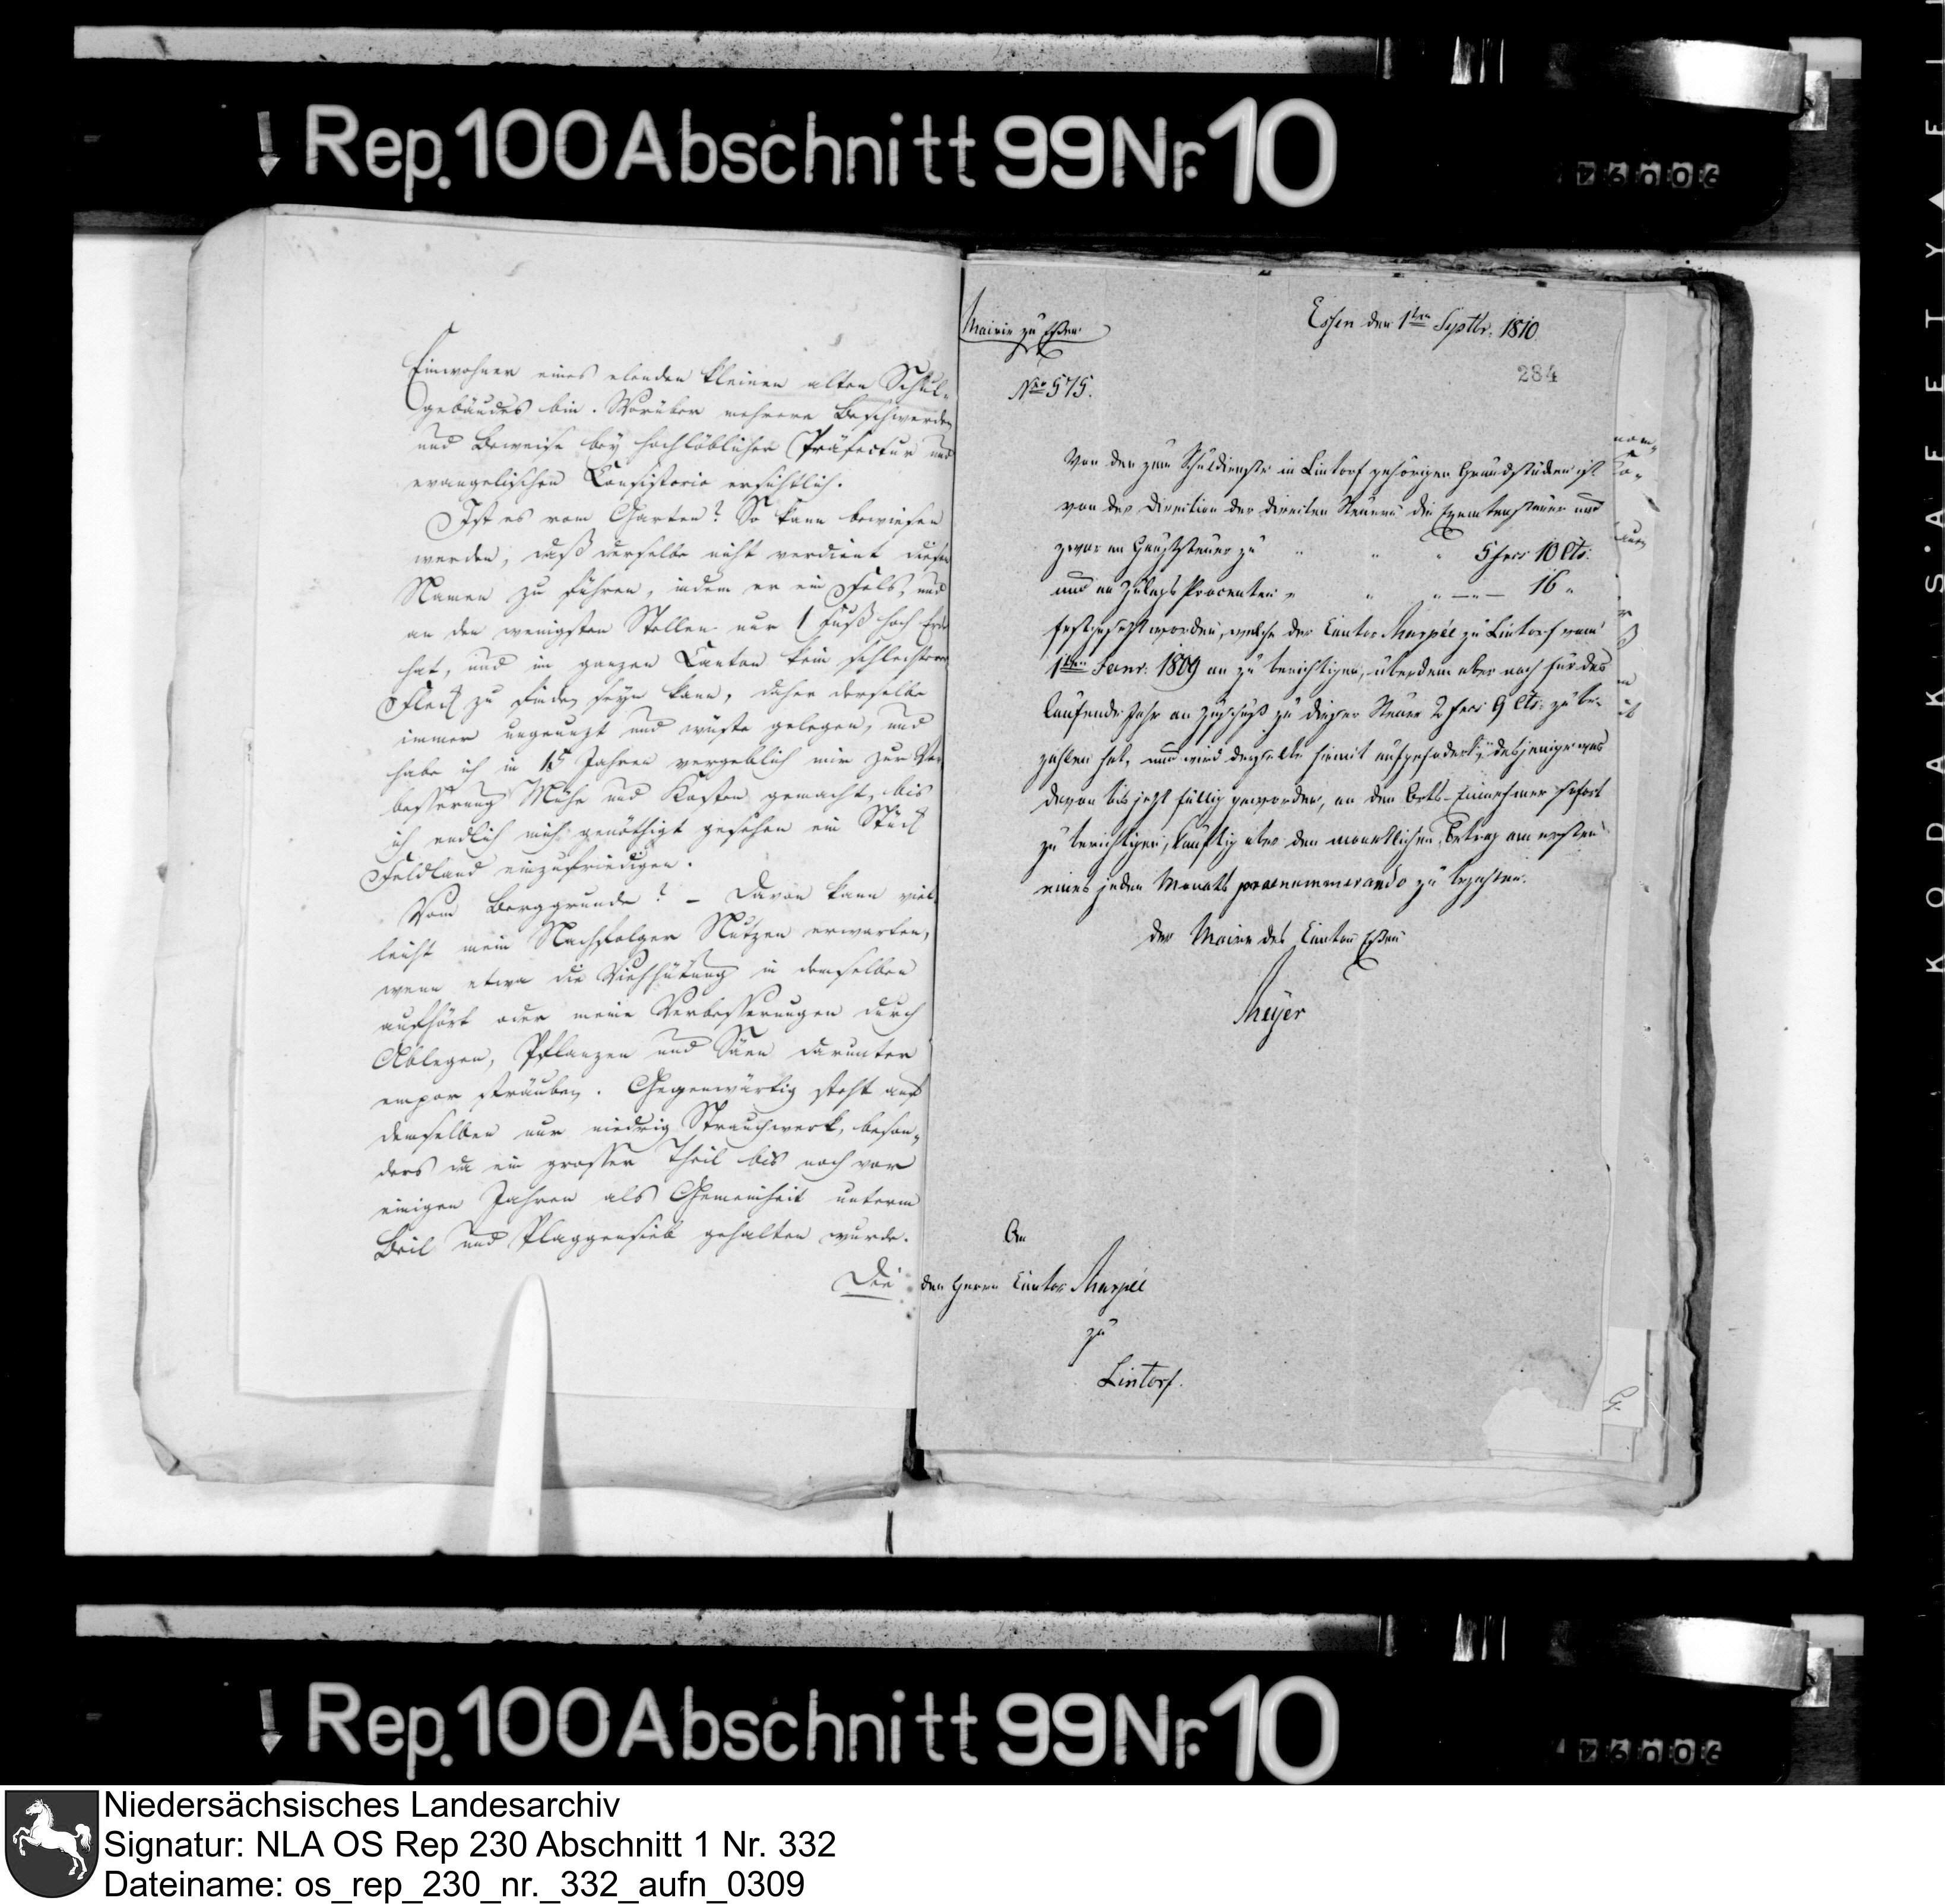 Rep. 100 Abschnitt 99 Nr. 10
Einwohner eines elenden kleinen alten Schul-
gebäudes bin. Worüber mehrere Beschwerden
und Beweise bey hochlöblicher Präfectur und
evangelischen Consistorio ersichtlich.
Ist es vom Garten? So kann bewiesen
werden, daß derselbe nicht verdient diesen
Namen zu führen, indem er ein Fels, und
an den wenigsten Stellen nur 1 Fuß hoch Erde
hat, und im ganzen Canton kein schlechterer
Fleck zu finden seyn kann, daher derselbe
immer ungenuzt und wüste gelegen, und
habe ich in 15 Jahren vergeblich mir zur Ver
besserung Mühe und Kosten gemacht, bis
ich endlich mich genöthigt gesehen ein Stück
Feldland einzufriedigen.
Vom Berggrunde? – Davon kann viel
leicht mein Nachfolger Nutzen erwarten,
wenn etwa die Viehhütung in demselben
aufhört oder meine Verbesserungen durch
Ablegen, Pflanzen und Säen darunter
empor sträuben. Gegenwärtig steht auf
demselben nur niedrig Strauchwerk, beson-
ders da ein grosser Theil bis noch vor
einigen Jahren als Gemeinheit unterm
Beil und Plaggensieb gehalten wurde.
Die
Mairie zu Essen
Essen den 1ten Septbr. 1810
284
Nro 575.
Von den zum Schuldienste in Lintorf gehörigen Grundstücken ist
von der Direction der directen Steuern die Exemtensteuer und
zwar an Hauptsteuer zu " " " 5 frcs 10 Cts.
und an Zulags Procenten " " " — " — 16 "
festgesetzt worden, welche der Cantor Meyer zu Lintorf vom
1ten Janr. 1809 an zu berichtigen, überdem aber noch für das
laufende Jahr an Zuschuß zu dieser Steuer 2 frcs 9 Cts. zu be-
zahlen hat, und wird derselbe hiemit aufgefodert, dasjenige was
davon bis jetzt fällig geworden, an den Orts-Einnehmer sofort
zu berichtigen, künftig aber den monatlichen Betrag am ersten
eines jeden Monats praenummerando zu bezahlen.
Der Maire des Canton Essen
Meyer
An
den Herrn Cantor
zu
Lintorf.
Rep. 100 Abschnitt 99 Nr. 10
KODAK SAFETY
Niedersächsisches Landesarchiv
Signatur: NLA OS Rep 230 Abschnitt 1 Nr. 332
Dateiname: os_rep_230_nr._332_aufn_0309